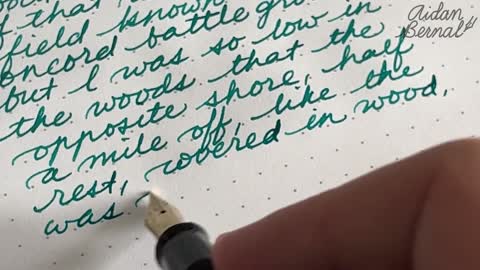 Aidan
Bernal
of that
field known
oncord battle gro
but I was so low in
the woods that the
opposite shore, half
a mile off, like the
rest, covered in wood,
was